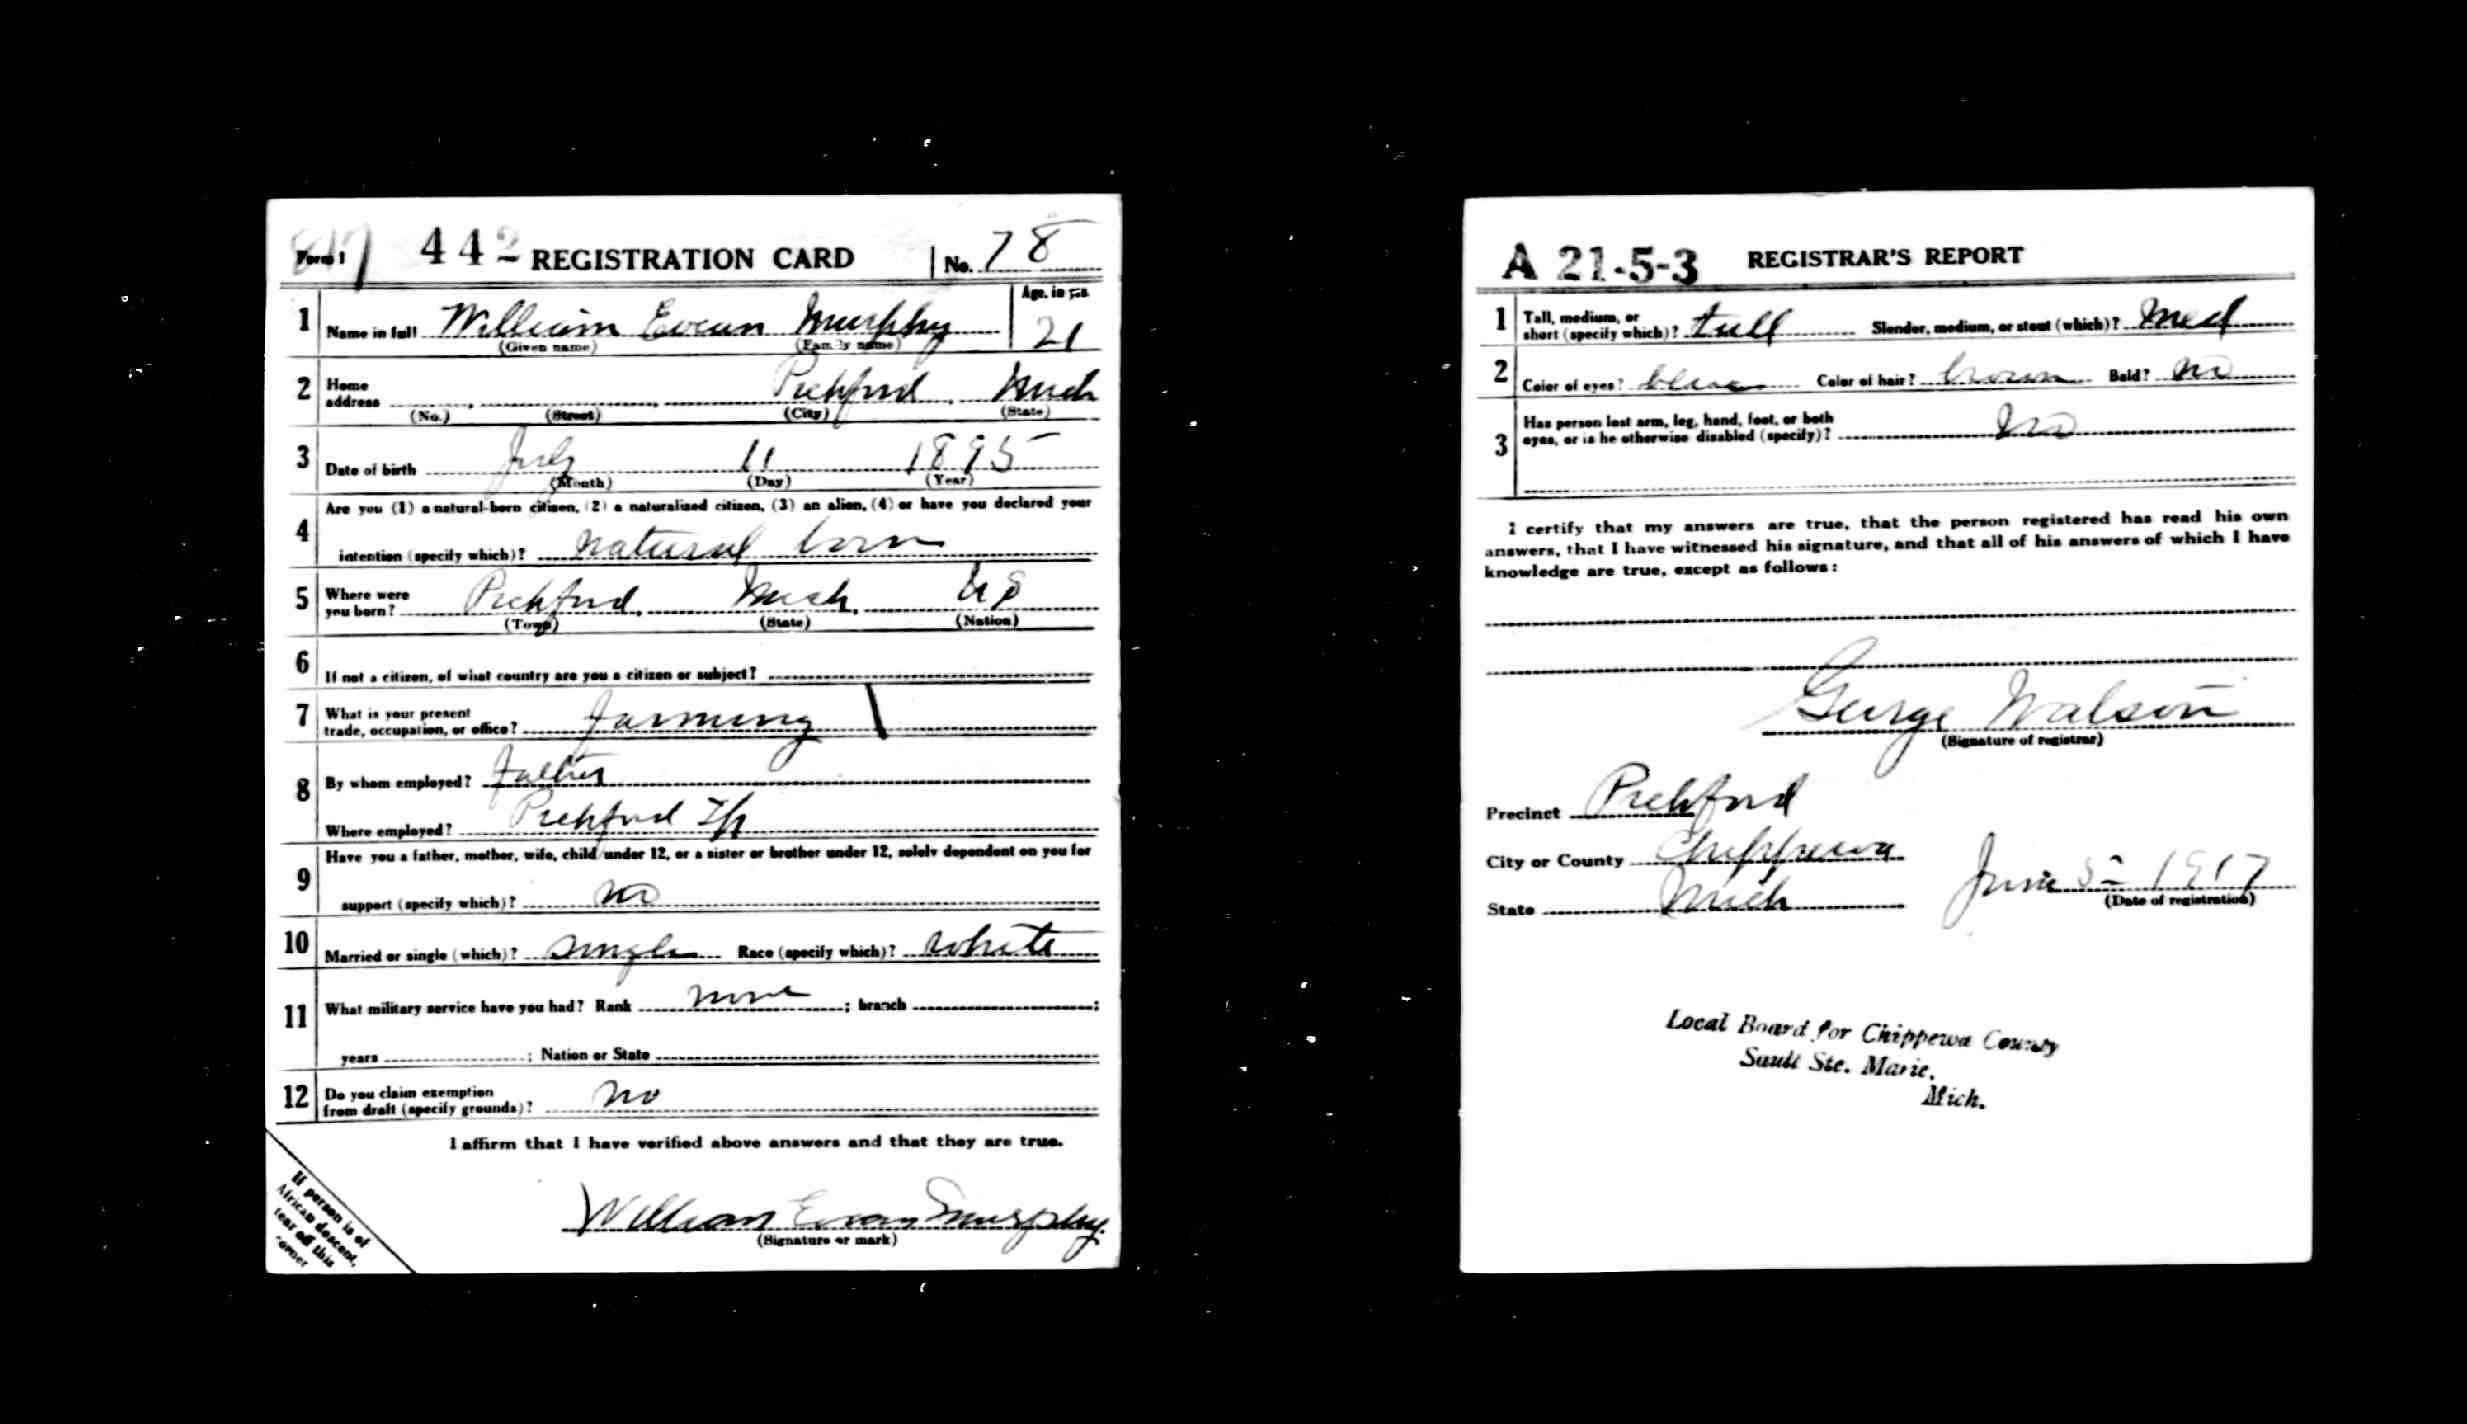 817
Form 1 442 REGISTRATION CARD No. 78
1 Name in full William Evean Murphy Age, in yrs. 21
(Given name) (Family name)
2 Home address Pickford, Mich
(No.) (Street) (City) (State)
3 Date of birth July 11 1895
(Month) (Day) (Year)
Are you (1) a natural-born citizen, (2) a naturalized citizen, (3) an alien, (4) or have you declared your
4 intention (specify which)? natural born
5 Where were you born? Pickford, Mich, US
(Town) (State) (Nation)
6 If not a citizen, of what country are you a citizen or subject?
7 What is your present trade, occupation, or office? farming
8 By whom employed? Father
Where employed? Pickford Tp
Have you a father, mother, wife, child under 12, or a sister or brother under 12, solely dependent on you for
9 support (specify which)? no
10 Married or single (which)? single Race (specify which)? white
11 What military service have you had? Rank none ; branch ;
years ; Nation or State
12 Do you claim exemption from draft (specify grounds)? no
I affirm that I have verified above answers and that they are true.
William Evean Murphy.
(Signature or mark)
If person is of
African descent,
tear off this
corner
A 21-5-3 REGISTRAR'S REPORT
1 Tall, medium, or short (specify which)? tall Slender, medium, or stout (which)? Med
2 Color of eyes? blue Color of hair? brown Bald? no
3 Has person lost arm, leg, hand, foot, or both
eyes, or is he otherwise disabled (specify)? No
I certify that my answers are true, that the person registered has read his own
answers, that I have witnessed his signature, and that all of his answers of which I have
knowledge are true, except as follows:
George Watson
(Signature of registrar)
Precinct Pickford
City or County Chippewa
State Mich June 5 1917
(Date of registration)
Local Board for Chippewa County
Sault Ste. Marie,
Mich.